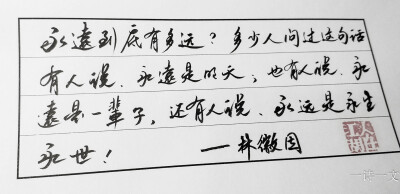 永遠到底有多远？多少人问过这句话
有人说、永遠是明天；也有人说、永
遠是一辈子，还有人说、永远是永生
永世！ ——林徽因